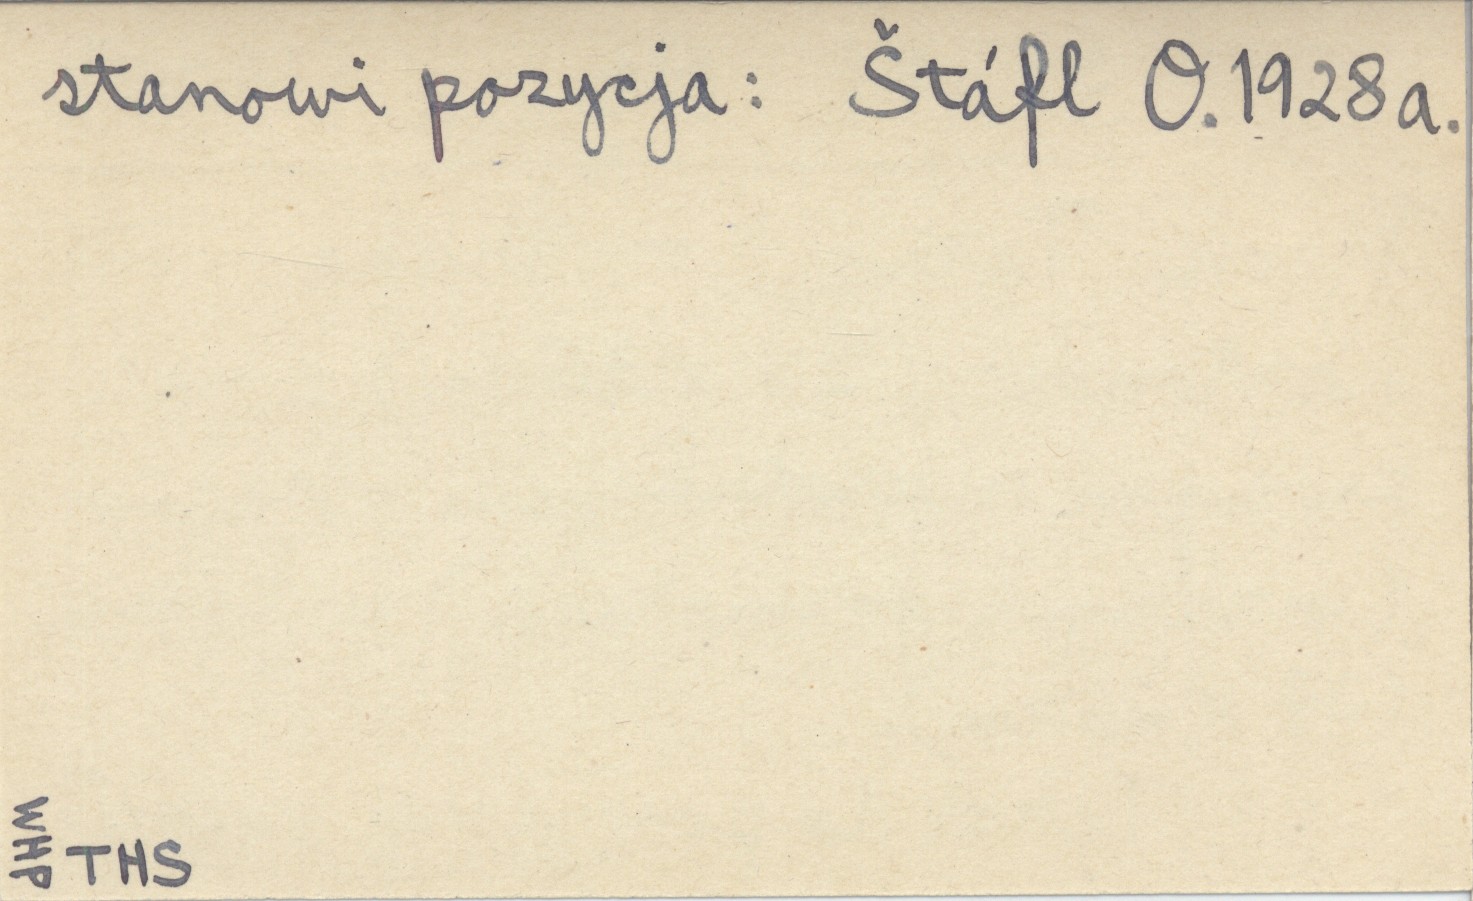 stanowi pozycja: Štáfl O. 1928a.
WHP
THS